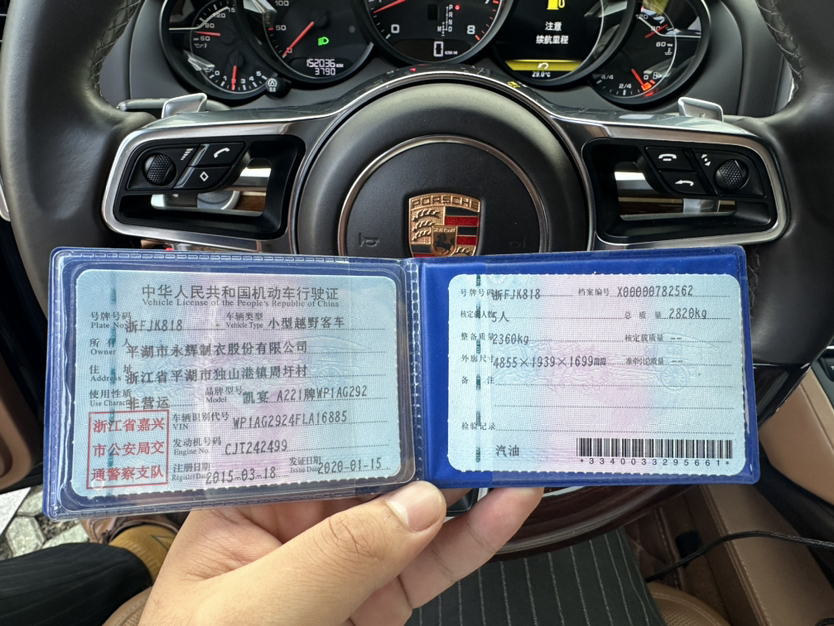 50
100
0
8
P
R
N
D
M
0
152036
3790
注意
续航里程
29.0℃
2/4
0
PORSCHE
中华人民共和国机动车行驶证
Vehicle License of the People's Republic of China
号牌号码 浙FJK818 车辆类型 小型越野客车
Plate No. Vehicle Type
所有人 平湖市永辉制衣股份有限公司
Owner
住址 浙江省平湖市独山港镇周圩村
Address
使用性质 非营运 品牌型号 凯宴 A221牌WP1AG292
Use Character Model
浙江省嘉兴
市公安局交
通警察支队
车辆识别代号 WP1AG2924FLA16885
VIN
发动机号码 CJT242499
Engine No.
注册日期 2015-03-18 发证日期 2020-01-15
Register Date Issue Date
号牌号码 浙FJK818 档案编号 X00000782562
核定载人数 5人 总质量 2820kg
整备质量 2360kg 核定载质量 --
外廓尺寸 4855×1939×1699mm 准牵引总质量 --
备注
检验记录
汽油
*3340033295661*